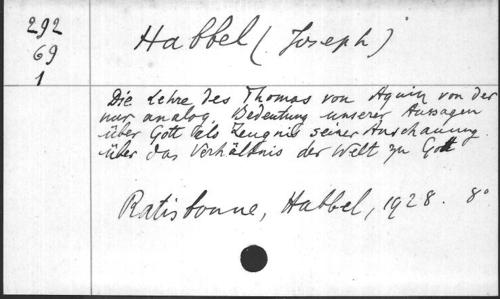 292
69
1
Habbel (Joseph)
Die Lehre des Thomas von Aquin von der
nur analog. Bedeutung unserer Aussagen
über Gott als Zeugnis seiner Anschauung
über das Verhältnis der Welt zu Gott
Ratisbonne, Habbel, 1928. 8°